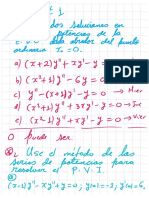 dos soluciones en
potencias de la
E.D.O dada alrededor del punto
ordinario x₀=0.
a) (x+2)y''+xy'-y=0
b) (x²+1)y''-6y=0
c) y''-(x+1)y'-y=0
d) (x²+1)y''+xy'-y=0
0 puede ser
2. Use el método de las
series de potencias para
resolver el P.V.I.
a)
(x-1)y''-xy'+y=0; y(0)=-2; y'(0)=6,